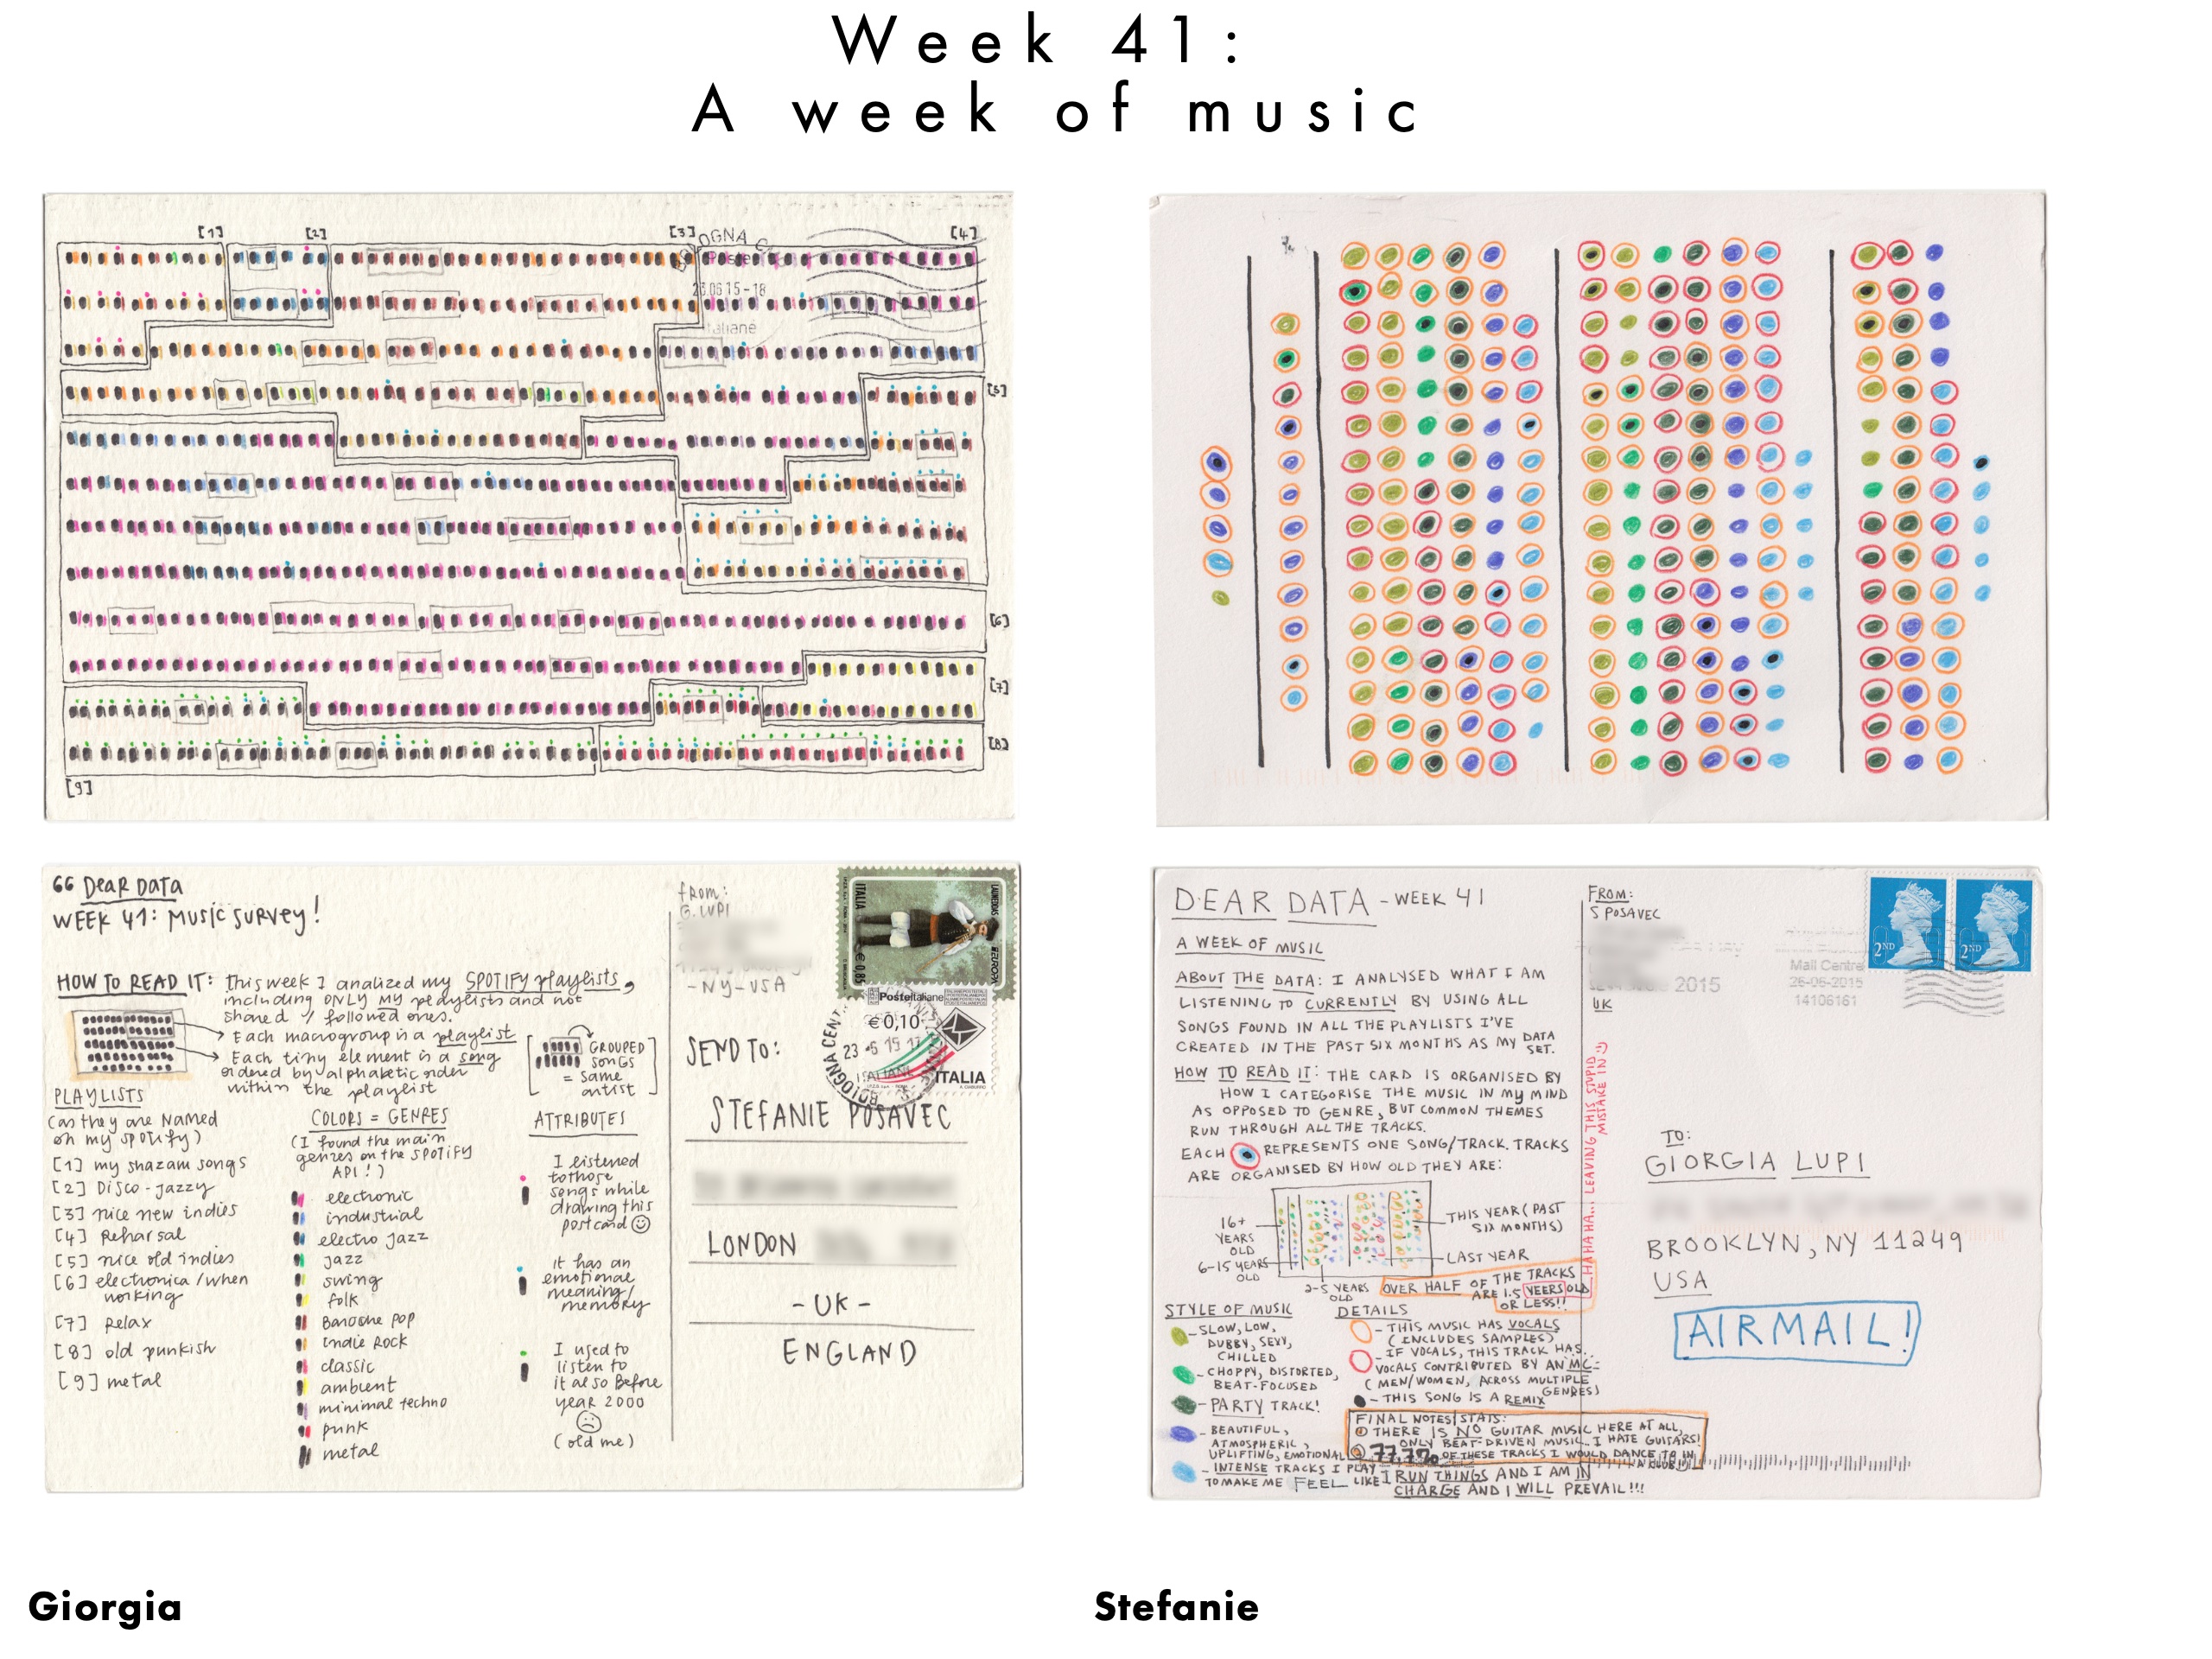 Week 41:
A week of music
[1]
[2]
[3]
[4]
OGNA C
Poste
23.06 15-18
Italiane
[5]
[6]
[7]
[8]
[9]
DEAR DATA
WEEK 41: MUSIC SURVEY!
HOW TO READ IT: this week I analized my SPOTIFY playlists,
including ONLY MY playlists and not
shared / followed ones.
Each macrogroup is a playlist
Each tiny element is a song
ordered by alphabetic order
within the playlist
GROUPED
SONGS
= same
artist
PLAYLISTS
(as they are NAMED
on my spotify)
[1] my shazam songs
[2] Disco-jazzy
[3] nice new indies
[4] Reharsal
[5] nice old indies
[6] electronica/when
working
[7] Relax
[8] old punkish
[9] metal
COLORS = GENRES
(I found the main
genres on the SPOTIFY
API!)
electronic
industrial
electro jazz
jazz
swing
folk
Baroque pop
indie Rock
classic
ambient
minimal techno
punk
metal
ATTRIBUTES
I listened
to those
songs while
drawing this
postcard
it has an
emotional
meaning/
memory
I used to
listen to
it also Before
year 2000
(old me)
from:
G. LUPI
-NY-USA
ITALIA
€0,85
EUROPA
Posteitaliane
€0,10
ITALIA
BOLOGNA CENT.
SEND TO:
STEFANIE POSAVEC
LONDON
-UK-
ENGLAND
DEAR DATA - WEEK 41
A WEEK OF MUSIC
ABOUT THE DATA: I ANALYSED WHAT I AM
LISTENING TO CURRENTLY BY USING ALL
SONGS FOUND IN ALL THE PLAYLISTS I'VE
CREATED IN THE PAST SIX MONTHS AS MY DATA
SET.
HOW TO READ IT: THE CARD IS ORGANISED BY
HOW I CATEGORISE THE MUSIC IN MY MIND
AS OPPOSED TO GENRE, BUT COMMON THEMES
RUN THROUGH ALL THE TRACKS.
EACH REPRESENTS ONE SONG/TRACK. TRACKS
ARE ORGANISED BY HOW OLD THEY ARE:
16+
YEARS
OLD
6-15 YEARS
OLD
2-5 YEARS
OLD
THIS YEAR (PAST
SIX MONTHS)
LAST YEAR
OVER HALF OF THE TRACKS
ARE 1.5 YEERS OLD
OR LESS!!
HAHAHA... LEAVING THIS STUPID
MISTAKE IN :)
STYLE OF MUSIC
SLOW, LOW,
DUBBY, SEXY,
CHILLED
CHOPPY, DISTORTED,
BEAT-FOCUSED
PARTY TRACK!
BEAUTIFUL,
ATMOSPHERIC,
UPLIFTING, EMOTIONAL
INTENSE TRACKS I PLAY
TO MAKE ME FEEL LIKE I RUN THINGS AND I AM IN
CHARGE AND I WILL PREVAIL!!!
DETAILS
- THIS MUSIC HAS VOCALS
(INCLUDES SAMPLES)
- IF VOCALS, THIS TRACK HAS
VOCALS CONTRIBUTED BY AN MC
(MEN/WOMEN, ACROSS MULTIPLE
GENRES)
- THIS SONG IS A REMIX
FINAL NOTES/STATS:
① THERE IS NO GUITAR MUSIC HERE AT ALL,
ONLY BEAT-DRIVEN MUSIC.. I HATE GUITARS!
② 77.7% OF THESE TRACKS I WOULD DANCE TO IN
A CLUB!!
FROM:
S POSAVEC
UK
2015
Mail Centre
26-06-2015
14106161
2ND
2ND
TO:
GIORGIA LUPI
BROOKLYN, NY 11249
USA
AIRMAIL!
Giorgia
Stefanie